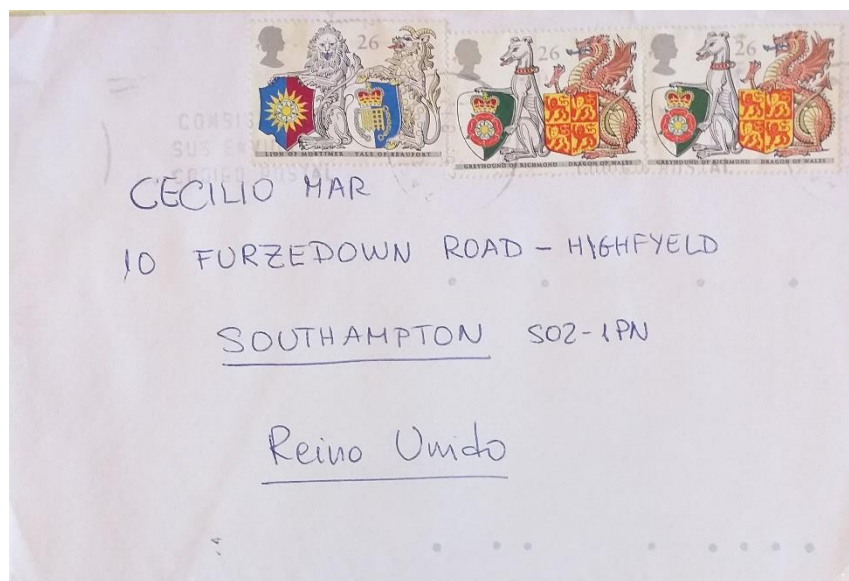 26 26 26
LION OF MORTIMER YALE OF BEAUFORT GREYHOUND OF RICHMOND DRAGON OF WALES GREYHOUND OF RICHMOND DRAGON OF WALES
SUS
POSTAL
CECILIO MAR
10 FURZEDOWN ROAD - HIGHFYELD
SOUTHAMPTON SO2-1PN
Reino Unido